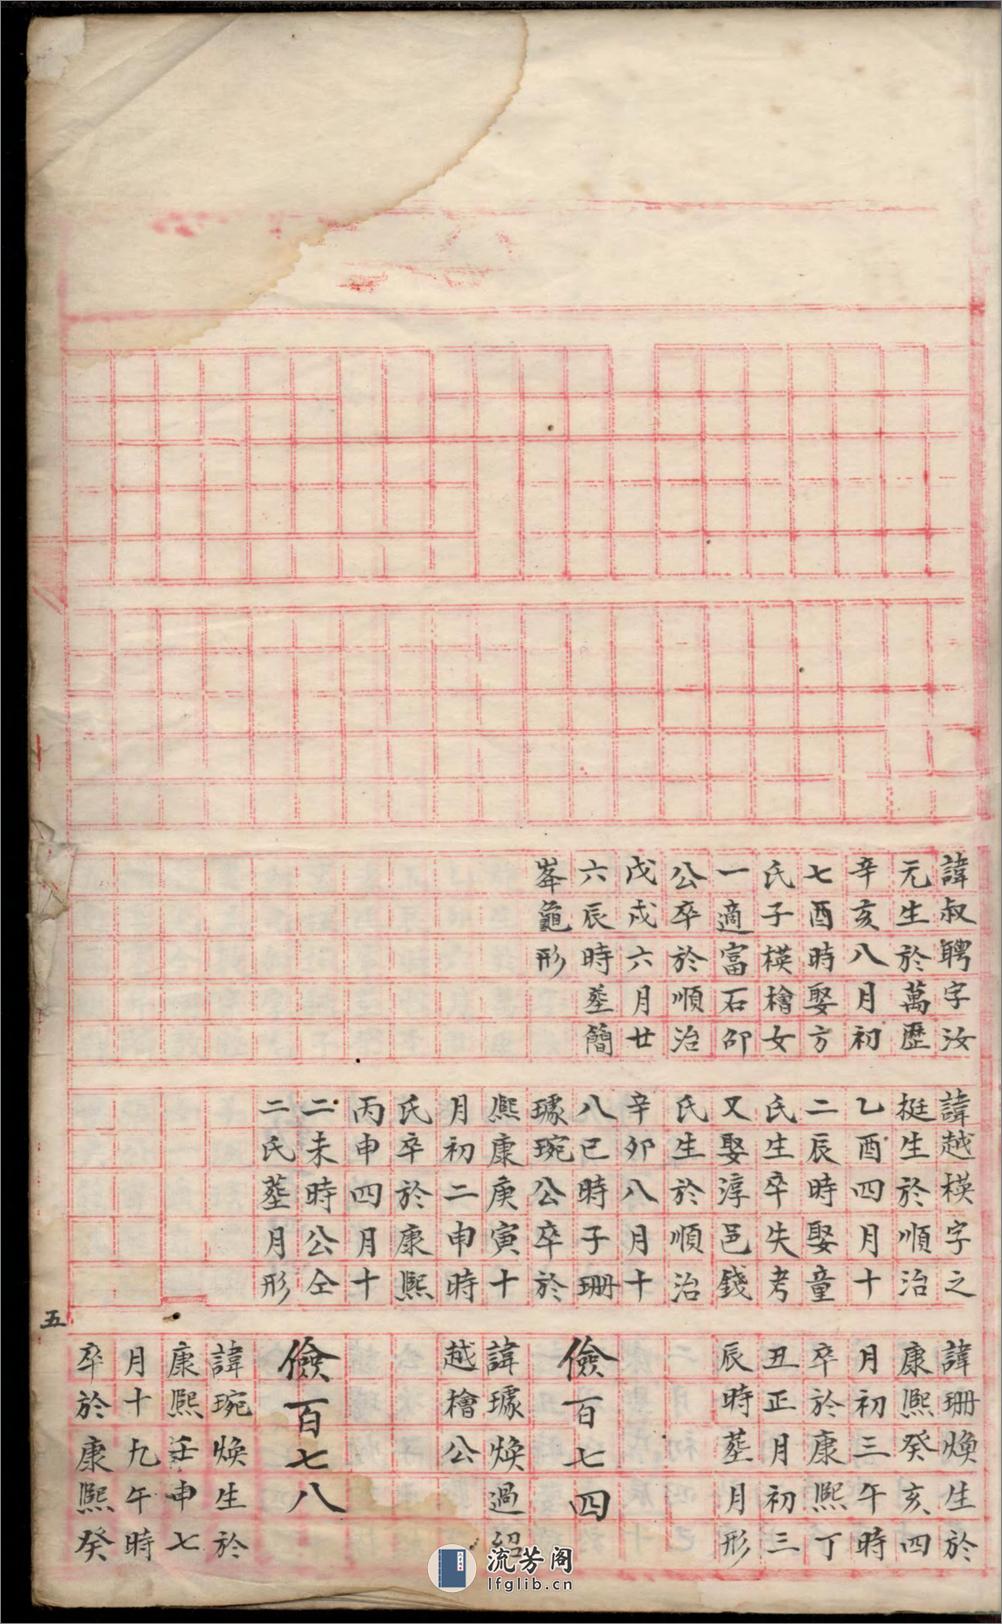 諱叔聘字汝
元生於萬歷
辛亥八月初
七酉時娶方
氏子模檜女
一適富石邵
公卒於順治
戊戌六月廿
六辰時塟簡
峯龜形
諱越模字之
挺生於順治
乙酉四月十
二辰時娶童
氏生卒失考
又娶淳邑錢
氏生於順治
辛卯八月十
八巳時子珊
璩琬公卒於
熈康庚寅十
月初二申時
氏卒於康熈
丙申四月十
二未時公仝
二氏塟月形
諱珊煥生於
康熈癸亥四
月初三午時
卒於康熈丁
丑正月初三
辰時塟月形
儉百七四
諱璩煥過紹
越檜公
儉百七八
諱琬煥生於
康熈壬申七
月十九午時
卒於康熈癸
五
流芳阁
lfglib.cn